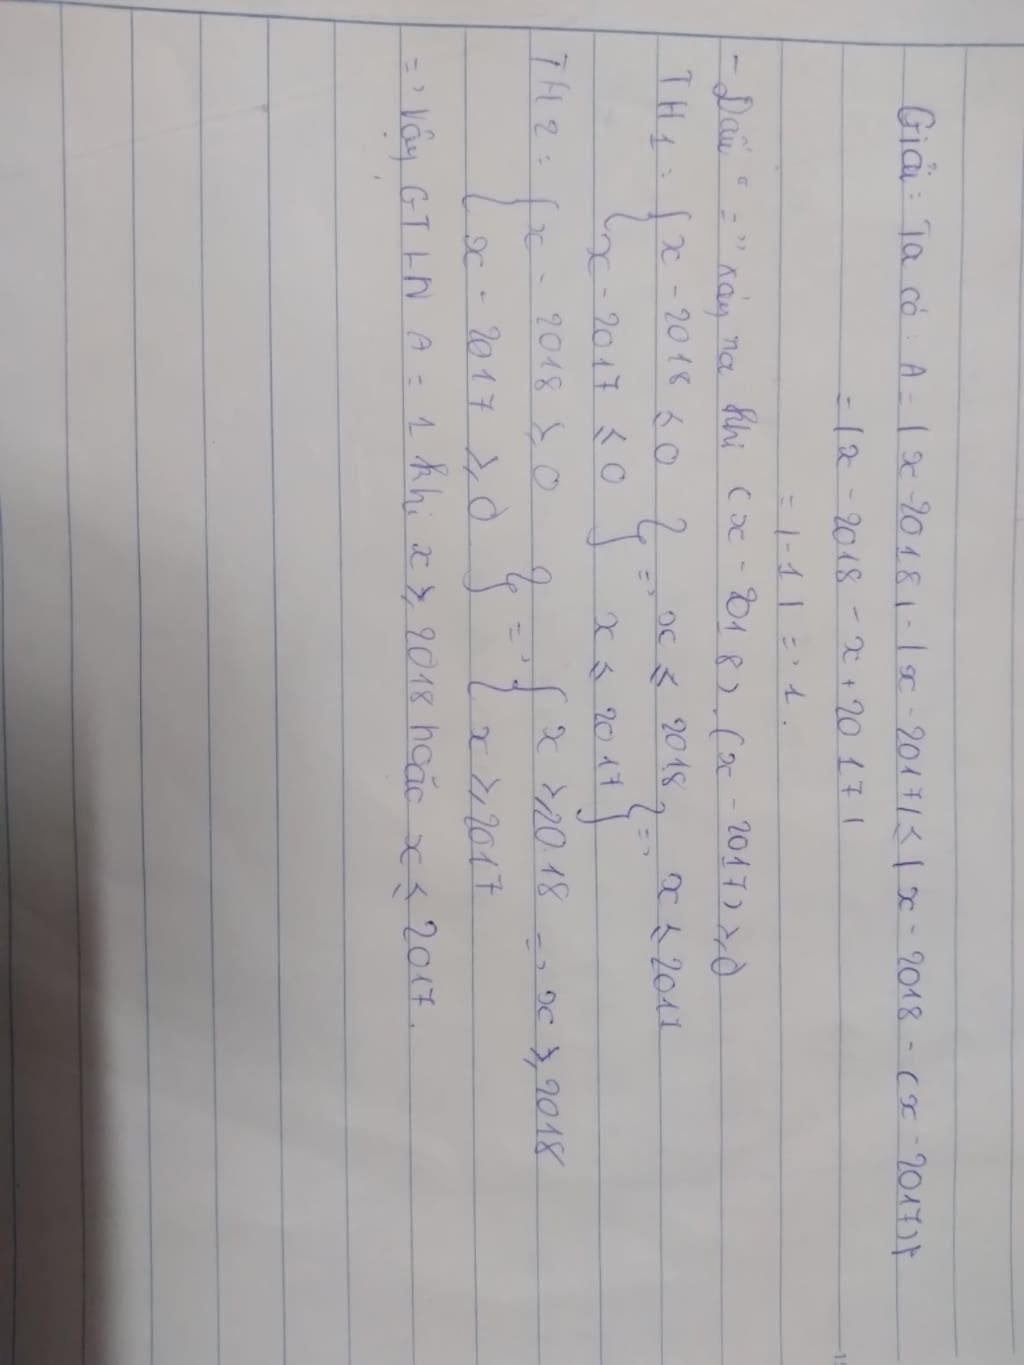 Giải: Ta có: A = |x - 2018| - |x - 2017| ≤ |x - 2018 - (x - 2017)|
= |x - 2018 - x + 2017|
= |-1| = 1.
- Dấu "=" xảy ra khi (x - 2018).(x - 2017) ≥ 0
TH1: { x - 2018 ≤ 0 } => x ≤ 2018 } => x ≤ 2017
{ x - 2017 ≤ 0 } x ≤ 2017 }
TH2: { x - 2018 ≥ 0 } => { x ≥ 2018 => x ≥ 2018
{ x - 2017 ≥ 0 } { x ≥ 2017
=> Vậy GTLN A = 1 khi x ≥ 2018 hoặc x ≤ 2017.